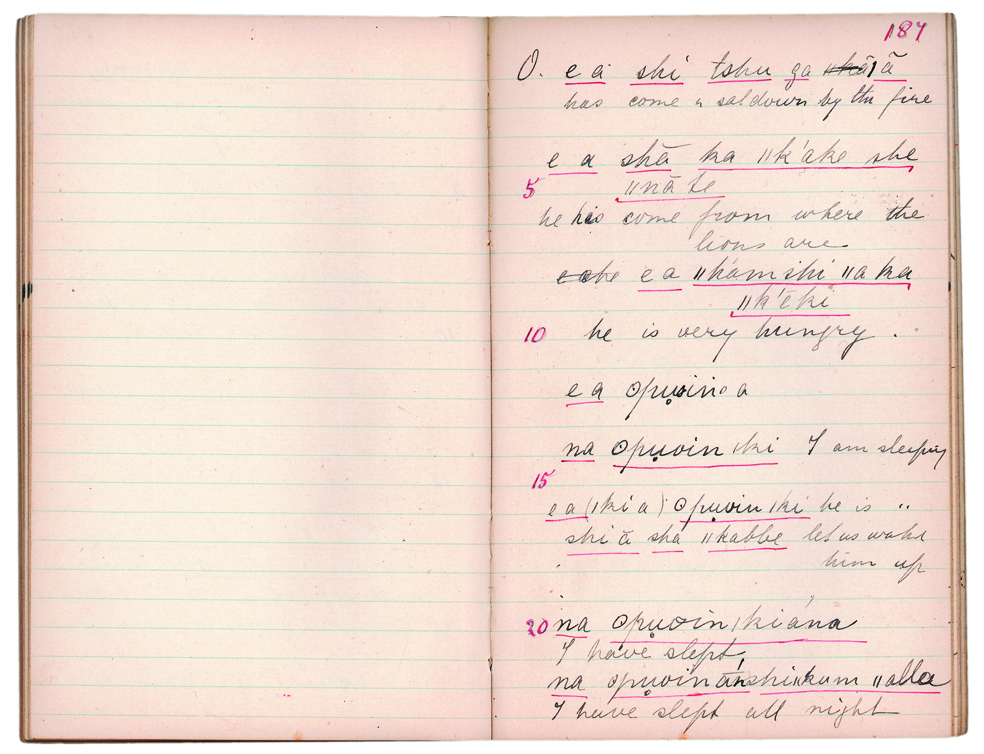 187
O. e a shi tshu ga ǀā
has come & sat down by the fire
e a shā ka ǁk'ake she
5 ǁnā te
he has come from where the
lions are
e a ǁkamshi ǁa ka
ǁk'ēki
10 he is very hungry.
e a ʘpu̥oin a
na ʘpu̥oin ǀki I am sleeping
15
e a (ǀki a) ʘpu̥oin ǀki he is "
shi ā sha ǁkabbe let us wake
him up
20 na ʘpu̥oin ǀki ána
I have slept
na ʘpu̥oin ǁkum ǁalla
I have slept all night